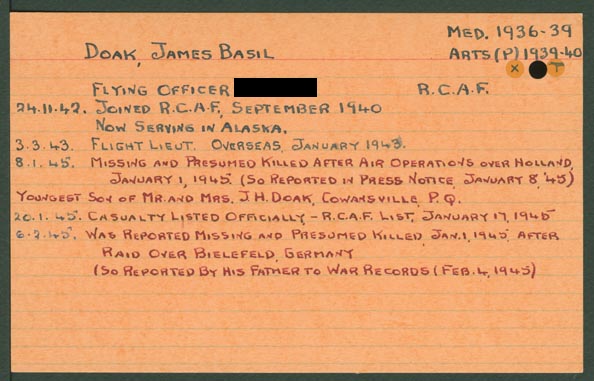 MED. 1936-39
DOAK, JAMES BASIL
ARTS (P) 1939-40
X T
FLYING OFFICER R.C.A.F.
24.11.42. JOINED R.C.A.F, SEPTEMBER 1940
NOW SERVING IN ALASKA.
3.3.43. FLIGHT LIEUT. OVERSEAS, JANUARY 1943.
8.1.45. MISSING AND PRESUMED KILLED AFTER AIR OPERATIONS OVER HOLLAND,
JANUARY 1, 1945. (SO REPORTED IN PRESS NOTICE, JANUARY 8, '45)
YOUNGEST SON OF MR. AND MRS. J.H. DOAK, COWANSVILLE, P.Q.
20.1.45. CASUALTY LISTED OFFICIALLY - R.C.A.F. LIST, JANUARY 17, 1945
6.2.45. WAS REPORTED MISSING AND PRESUMED KILLED, JAN. 1, 1945, AFTER
RAID OVER BIELEFELD, GERMANY
(SO REPORTED BY HIS FATHER TO WAR RECORDS (FEB. 4, 1945)